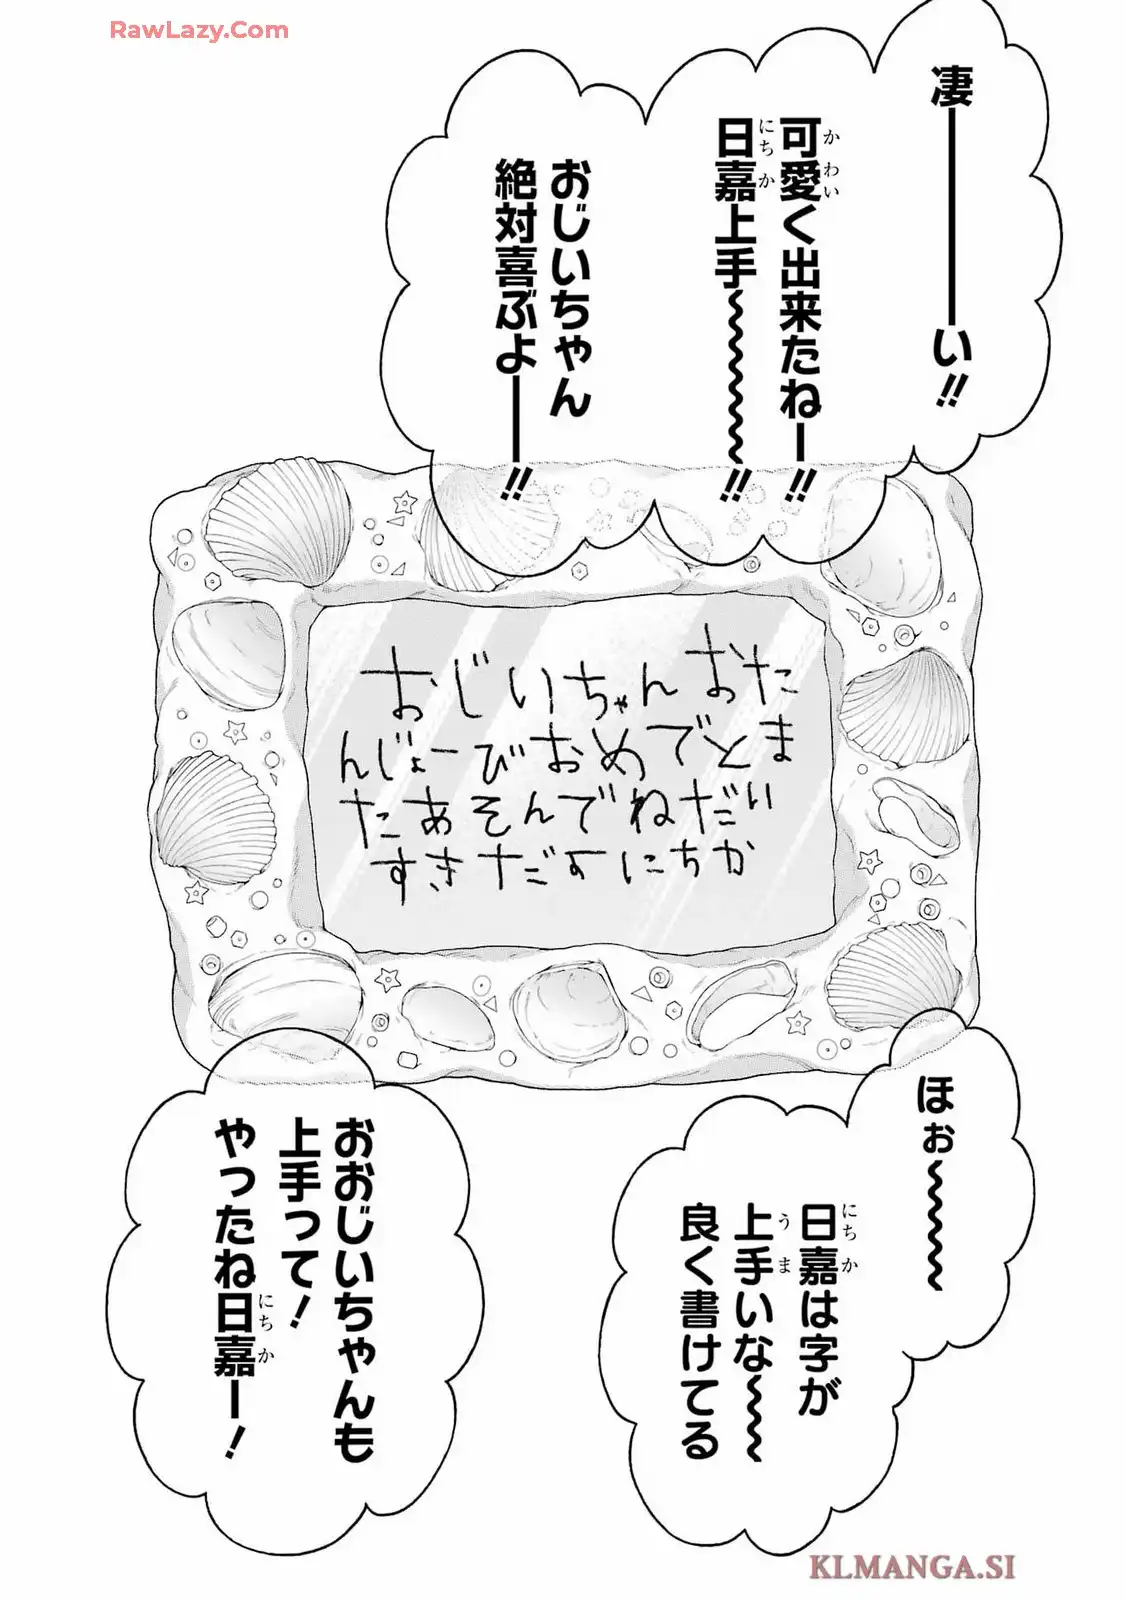 RawLazy.Com
凄ーーーい!!
可愛く出来たねー!!
かわい
日嘉上手〜〜〜〜!!
にちか
おじいちゃん
絶対喜ぶよーー!!
おじいちゃんおた
んじょーびおめでとま
たあそんでねだい
すきだすにちか
ほぉ〜〜〜
日嘉は字が
にちか
上手いな〜〜
うま
良く書けてる
おおじいちゃんも
上手って!
やったね日嘉ー!
にちか
KLMANGA.SI